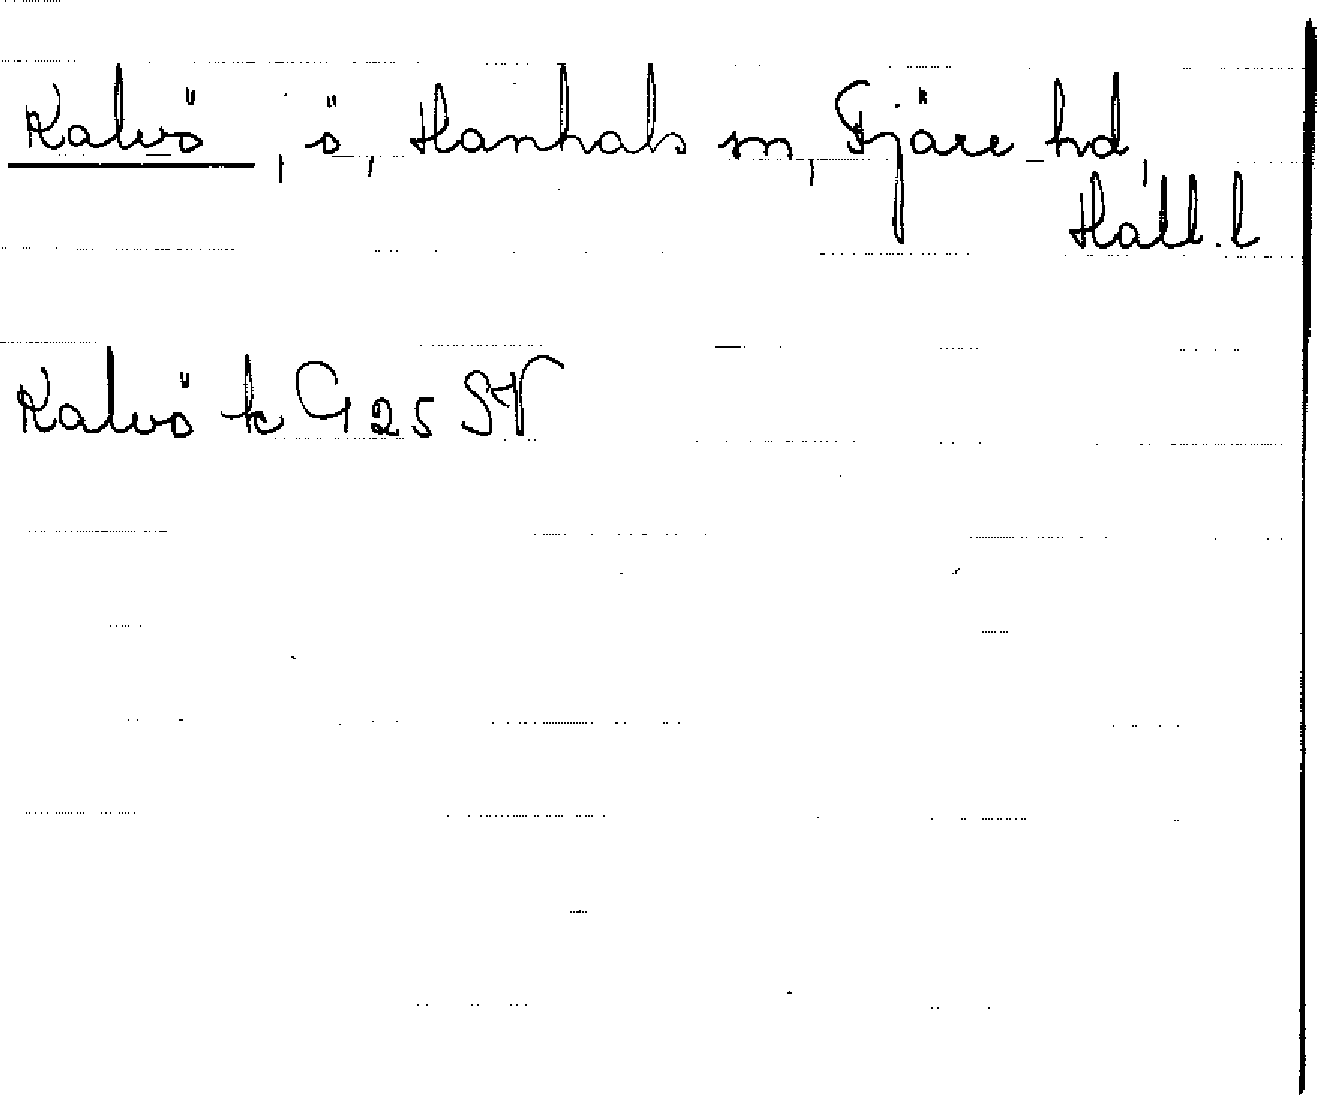 Kalvö, ö, Hanhals sn, Fjäre hd,
Hall. l
Kalvö k G 25 SV